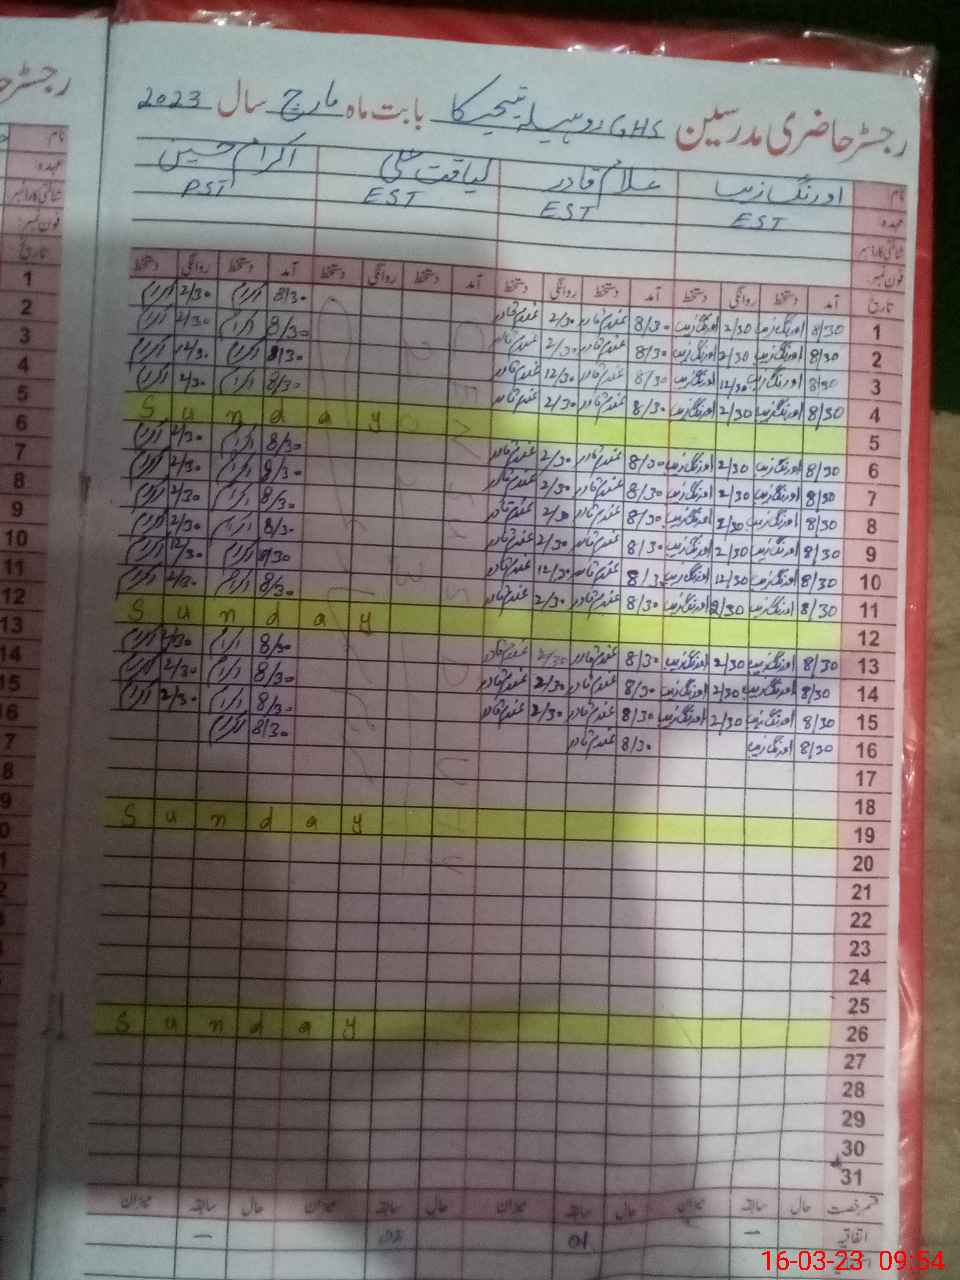 رجسٹر حاضری مدرسین GHS روہیلہ تیجیکا بابت ماہ مارچ سال 2023
نام اورنگ زیب غلام قادر لیاقت علی اکرام حسین
عہدہ EST EST EST PST
شناختی کارڈ نمبر
فون نمبر
تاریخ آمد دستخط روانگی دستخط آمد دستخط روانگی دستخط آمد دستخط روانگی دستخط آمد دستخط روانگی دستخط
1 8/30 اورنگ زیب 2/30 اورنگ زیب 8/30 غلام قادر 2/30 غلام قادر 8/30 اکرام 2/30 اکرام
2 8/30 اورنگ زیب 2/30 اورنگ زیب 8/30 غلام قادر 2/30 غلام قادر 8/30 اکرام 2/30 اکرام
3 8/30 اورنگ زیب 12/30 اورنگ زیب 8/30 غلام قادر 12/30 غلام قادر 8/30 اکرام 12/30 اکرام
4 8/30 اورنگ زیب 2/30 اورنگ زیب 8/30 غلام قادر 2/30 غلام قادر 8/30 اکرام 2/30 اکرام
5 Sunday
6 8/30 اورنگ زیب 2/30 اورنگ زیب 8/30 غلام قادر 2/30 غلام قادر 8/30 اکرام 2/30 اکرام
7 8/30 اورنگ زیب 2/30 اورنگ زیب 8/30 غلام قادر 2/30 غلام قادر 8/30 اکرام 2/30 اکرام
8 8/30 اورنگ زیب 2/30 اورنگ زیب 8/30 غلام قادر 2/30 غلام قادر 8/30 اکرام 2/30 اکرام
9 8/30 اورنگ زیب 2/30 اورنگ زیب 8/30 غلام قادر 2/30 غلام قادر 8/30 اکرام 2/30 اکرام
10 8/30 اورنگ زیب 12/30 اورنگ زیب 8/30 غلام قادر 12/30 غلام قادر 8/30 اکرام 12/30 اکرام
11 8/30 اورنگ زیب 2/30 اورنگ زیب 8/30 غلام قادر 2/30 غلام قادر 8/30 اکرام 2/30 اکرام
12 Sunday
13 8/30 اورنگ زیب 2/30 اورنگ زیب 8/30 غلام قادر 2/30 غلام قادر 8/30 اکرام 2/30 اکرام
14 8/30 اورنگ زیب 2/30 اورنگ زیب 8/30 غلام قادر 2/30 غلام قادر 8/30 اکرام 2/30 اکرام
15 8/30 اورنگ زیب 2/30 اورنگ زیب 8/30 غلام قادر 2/30 غلام قادر 8/30 اکرام 2/30 اکرام
16 8/30 اورنگ زیب 8/30 غلام قادر 8/30 اکرام
17
18
19 Sunday
20
21
22
23
24
25
26 Sunday
27
28
29
30
31
قسم رخصت حال سابقہ میزان حال سابقہ میزان حال سابقہ میزان حال سابقہ میزان
اتفاقیہ – 01 –
16-03-23 09:54